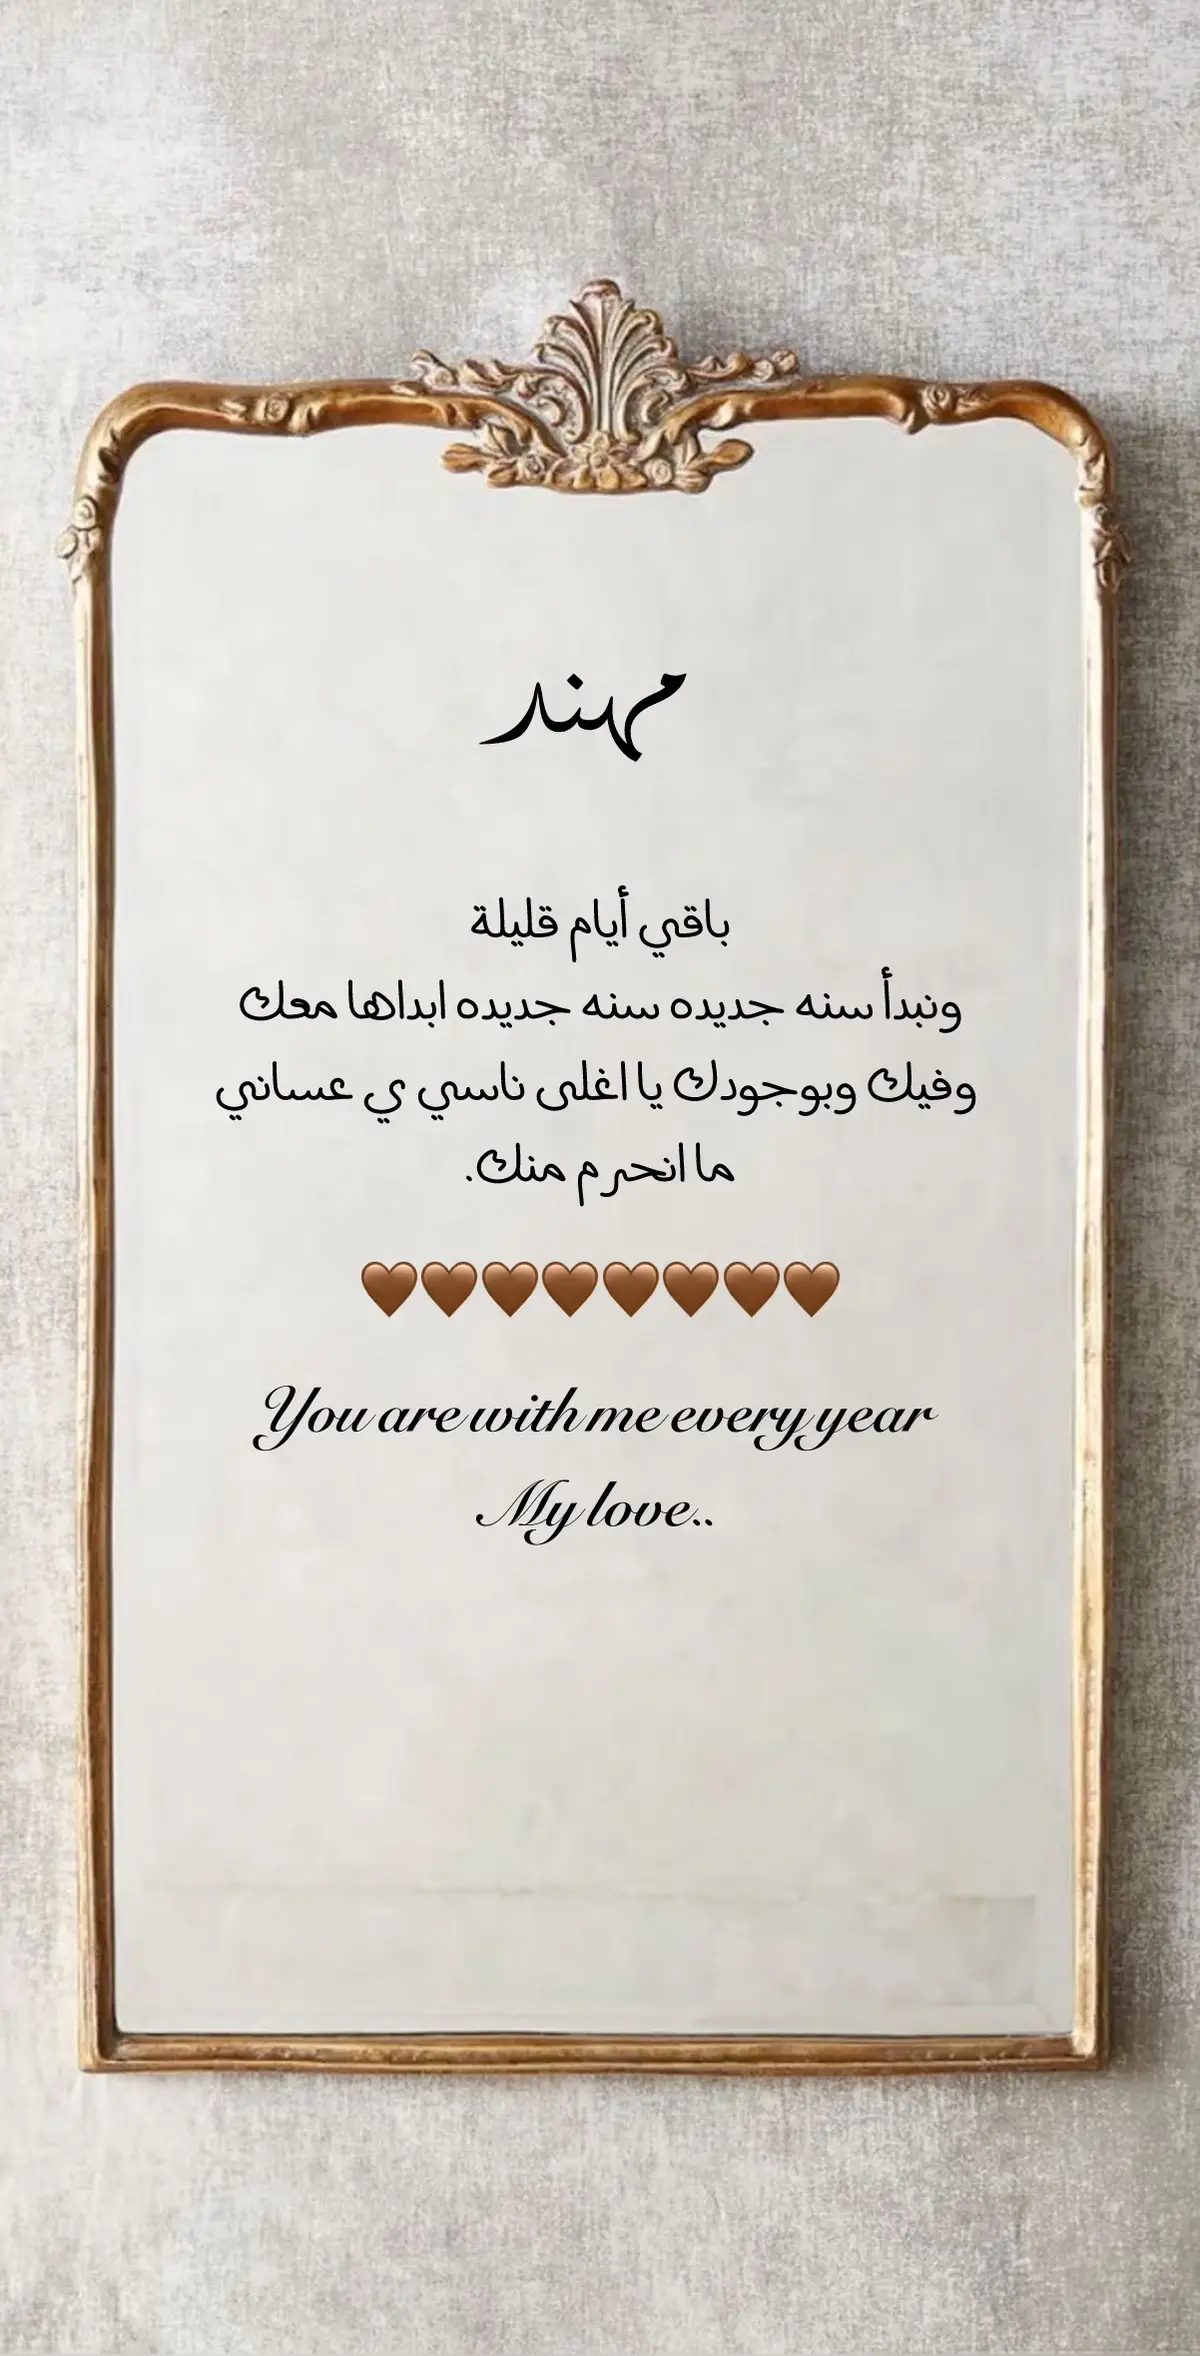 مهند
باقي أيام قليلة
ونبدأ سنه جديده سنه جديده ابداها معك
وفيك وبوجودك يا اغلى ناسي ي عساني
ما انحرم منك.
🤎🤎🤎🤎🤎🤎🤎🤎
You are with me every year
My love..